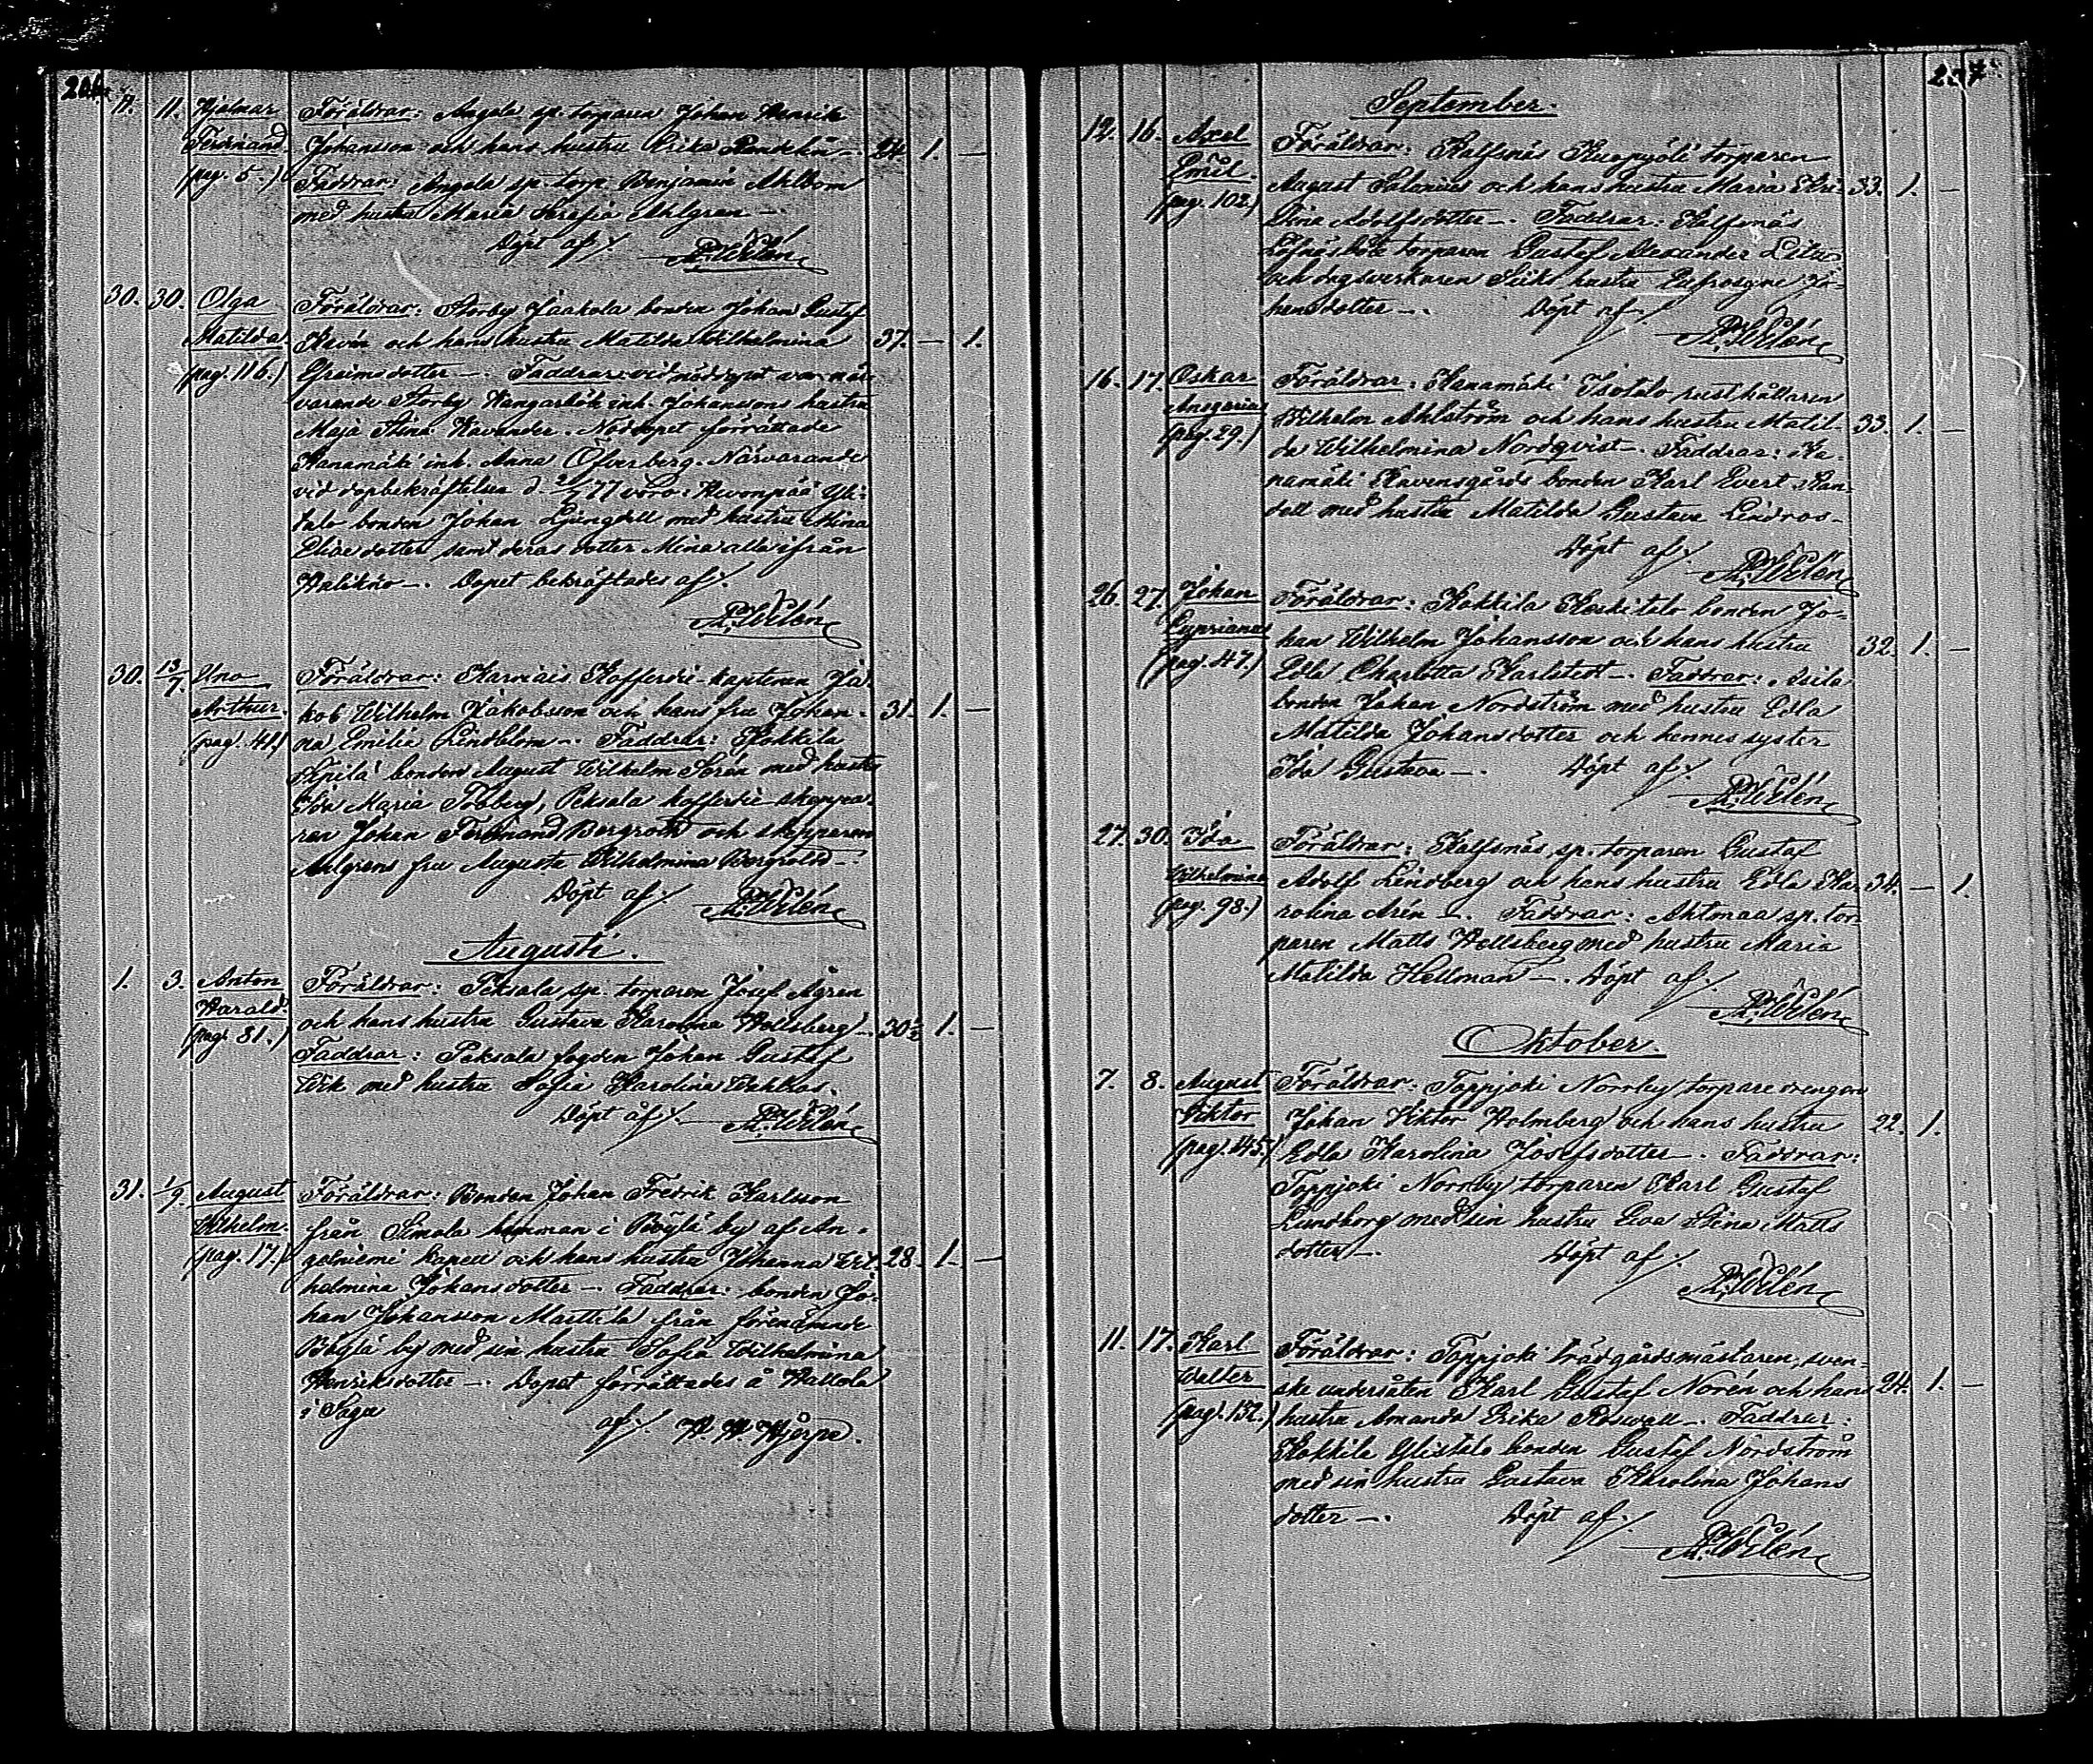 206.
11. 11. Hjalmar Föräldrar: Angela sp. torparen Johan Henrik
Ferdinand. Johansson och hans hustru Erika Randelin —. 24. 1. —
(pag. 5.) Faddrar: Angela sp. torp. Benjamin Ahlbom
med hustru Maria Serafia Ahlgren —.
Döpt af /. Wilén
30. 30. Olga Föräldrar: Storby Jaakola bonden Johan Gustaf
Matilda. och hans hustru Matilda Wilhelmina 37. — 1.
(pag. 116.) Efraimsdotter —. Faddrar: vid nöddopet var när-
varande Storby inh. Johanssons hustru
Maja Stina Kavander. Nöddopet förrättade
Kanamäki inh. Anna Öfverberg. Närvarande
vid dopbekräftelsen d. 77 voro: Yli-
talo bonden Johan Ljungdell med hustru Mina
dotter samt deras dotter Mina alla ifrån
Halikko —. Dopet bekräftades af /.
Wilén
30. 13/7. Uno Föräldrar: Karviais Kofferdie-kaptenen Ja-
Arthur. kob Wilhelm Jakobsson och hans fru Johan- 31. 1. —
(pag. 41.) na Emilia Lindblom —. Faddrar: Kokkila
Sipilä bonden August Wilhelm Sorén med hustru
Ida Maria Toberg, Peksala kofferdie-skeppa-
ren Johan Ferdinand Bergroth och skepparen
Ahlgrens fru Augusta Wilhelmina —.
Döpt af /. Wilén
Augusti.
1. 3. Anton Föräldrar: Peksala sp. torparen Josef Ågren
Harald. och hans hustru Gustava Karolina Hellsberg —. 30½ 1. —
(pag. 81.) Faddrar: Peksala fogden Johan Gustaf
Wik med hustru Sofia Karolina.
Döpt af /. Wilén
31. 1/9. August Föräldrar: Bonden Johan Fredrik Karlsson
Wilhelm. från Simola hemman i Pöylä by af An-
(pag. 17.) gelniemi kapell och hans hustru Johanna Wil- 28. 1. —
helmina Johansdotter —. Faddrar: bonden Jo-
han Johansson Marttila från förenämnde
Pöylä by med sin hustru Sofia Wilhelmina
Henriksdotter —. Dopet förrättades å
i Sagu af /. Hjerpe.
207
September.
12. 16. Axel Föräldrar: Kalfsnäs torparen
Emil. August Salonius och hans hustru Maria Kri- 33. 1. —
(pag. 102.) stina Adolfsdotter —. Faddrar: Kalfsnäs
torparen Gustaf Alexander
och dagsverkaren hustru Eufrosyne Jo-
hansdotter —. Döpt af /.
Wilén
16. 17. Oskar Föräldrar: Kanamäki Isotalo rusthållaren
Ansgarius Wilhelm Ahlström och hans hustru Matil- 33. 1. —
(pag. 29.) da Wilhelmina Nordqvist —. Faddrar: Ka-
namäki Kavensgårds bonden Karl Evert Ran-
dell med hustru Matilda Gustava Lindroos.
Döpt af /. Wilén
26. 27. Johan Föräldrar: Kokkila Keskitalo bonden Jo-
Cyprianus han Wilhelm Johansson och hans hustru 32. 1. —
(pag. 47.) Edla Charlotta Karlstedt —. Faddrar: Asila
bonden Johan Nordström med hustru Edla
Matilda Johansdotter och hennes syster
Ida Gustava —. Döpt af /.
Wilén
27. 30. Ida Föräldrar: Kalfsnäs sp. torparen Gustaf
Wilhelmina Adolf Lindberg och hans hustru Edla Ka- 34. — 1.
(pag. 98.) rolina Arén —. Faddrar: Ahtmaa sp. tor-
paren Matts Hellsberg med hustru Maria
Matilda Hellman —. Döpt af /.
Wilén
Oktober.
7. 8. August Föräldrar: Toppjoki Norrby torpare drengen
Viktor Johan Viktor Holmberg och hans hustru 22. 1.
(pag. 145.) Edla Karolina Josefsdotter —. Faddrar:
Toppjoki Norrby torparen Karl Gustaf
Lundborg med sin hustru Eva Stina Matts
dotter —. Döpt af /.
Wilén
11. 17. Karl Föräldrar: Toppjoki trädgårdsmästaren, sven-
Walter ske undersåten Karl Gustaf Norén och hans 24. 1. —
(pag. 132.) hustru Amanda Erika Roswall —. Faddrar:
Kokkila Ylistalo bonden Gustaf Nordström
med sin hustru Gustava Karolina Johans
dotter —. Döpt af /.
Wilén